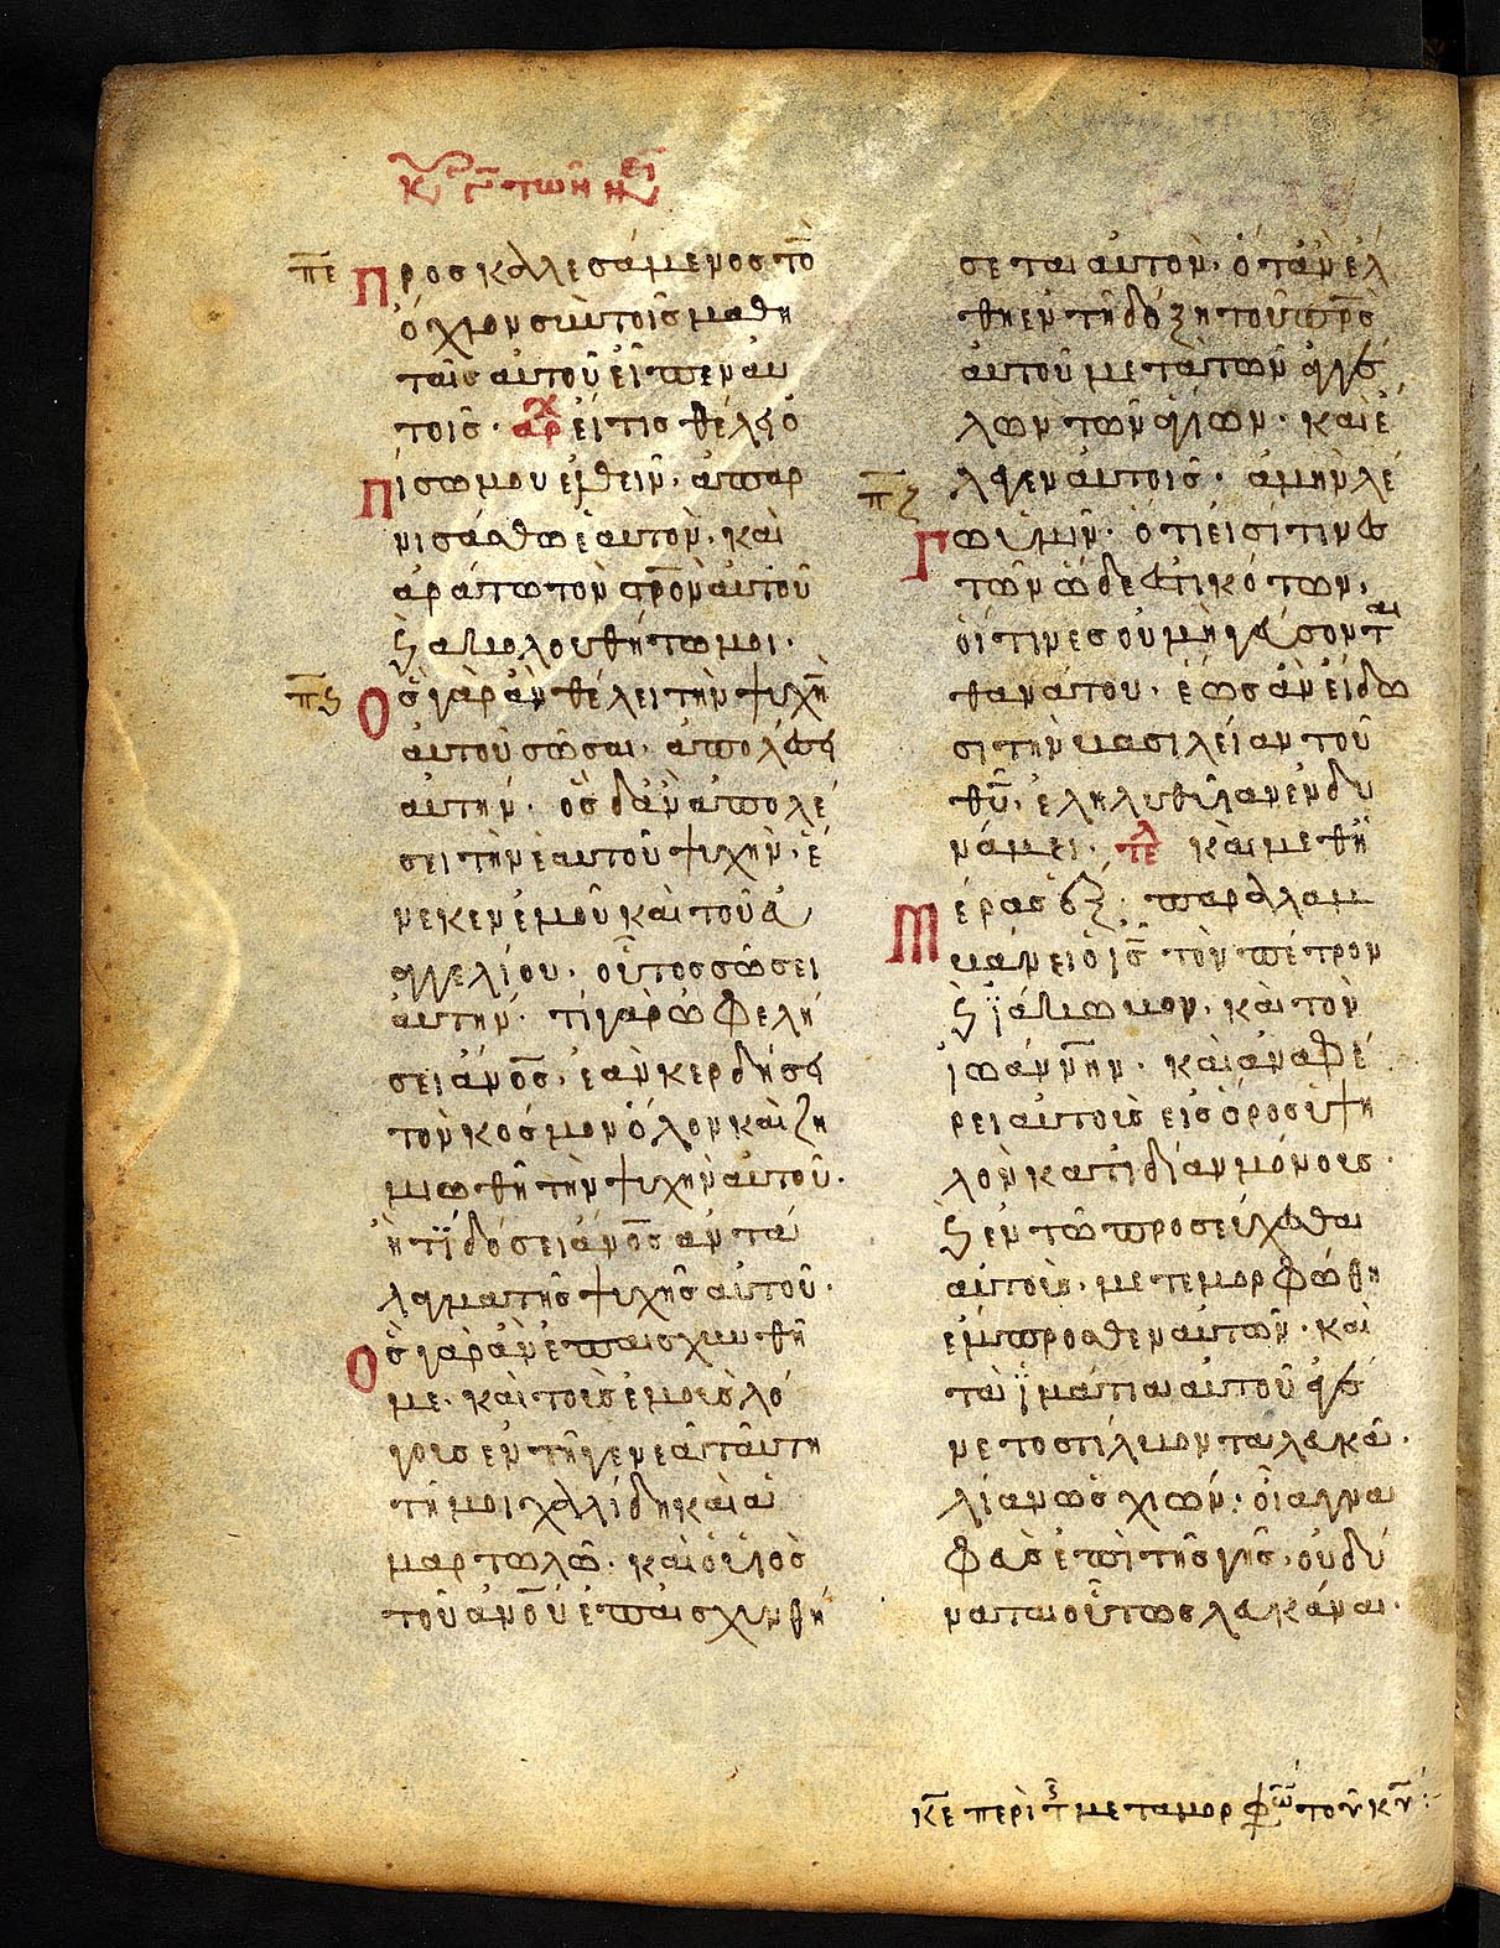 πε Προσκαλεσάμενος τὸ
ὄχλον σὺν τοῖς μαθη
ταῖς αὐτοῦ εἶπεν αυ
τοῖς· αρχ εἴ τις θέλει ὀ
πίσω μου ἐλθεῖν, ἀπαρ
νισάσθω ἑαυτὸν, καὶ
ἀράτω τὸν σ̅ρ̅ο̅ν αὐτοῦ
ϗ ἀκολουθήτω μοι·
πϛ Ὃς γὰρ ἂν θέλει τὴν ψυχὴ̅
αὐτοῦ σῶσαι, ἀπολέσει
αὐτήν· ὃς δ' ἂν ἀπολέ
σει τὴν ἑαυτοῦ ψυχὴν, ἕ
νεκεν ἐμοῦ καὶ τοῦ εὐ
αγγελίου, οὗτος σώσει
αὐτήν· τί γὰρ ὠφελή
σει ἄν̅ο̅ς, ἐὰν κερδήσει
τὸν κόσμον ὅλον καὶ ζη
μιωθῆ τὴν ψυχὴν αὐτοῦ·
ἢ τί δόσει ἄν̅ο̅ς ἀντά
λαγμα τῆς ψυχῆς αὐτοῦ·
Ὃς γὰρ ἂν ἐπαισχυνθῆ
με, καὶ τοὺς ἐμοὺς λό
γους ἐν τῆ γενεᾶ ταύτη
τῆ μοιχαλίδη καὶ ἁ
μαρτωλῶ· καὶ ὁ υἱὸς
τοῦ ἀν̅ο̅υ ἐπαισχυνθή
σεται αὐτὸν, ὅταν ἔλ
θη ἐν τῆ δόξη τοῦ π̅ρ̅ς
αὐτοῦ μετὰ τῶν ἀγγέ
λων τῶν ἁγίων· καὶ ἔ
πζ λεγεν αὐτοῖς· ἀμὴν λέ
Γω ὑμῖν· ὅτι εἰσί τινες
τῶν ὧδε ἑστικότων,
οἵτινες οὐ μὴ γεύσονται
θανάτου, ἕως ἂν εἴδω
σι τὴν βασιλείαν τοῦ
θ̅υ̅, ἐληλυθῖαν ἐν δυ
νάμει· τελ καὶ μεθ ἡ
Μέρας ἓξ· παραλαμ
βάνει ὁ ι̅ς̅ τὸν πέτρον
ϗ ϊάκωβον, καὶ τὸν
ἰωάννην· καὶ ἀναφέ
ρει αὐτοὺς εἰς ὄρος ὑψη
λὸν κατιδίαν μόνους·
ϗ ἐν τῶ προσεύχεσθαι
αὐτοὺς, μετεμορφώθη
ἔμπροσθεν αὐτῶν· καὶ
τὰ ϊμάτια αὐτοῦ ἐγέ
νετο στίλβοντα λευκὰ·
λίαν ὡς χιών· οἷα γνα
φεὺς ἐπὶ τῆς γῆς, οὐ δύ
ναται οὕτως λευκάναι·
κ̅ε̅ περὶ τ̅ μεταμορφω̅ τοῦ κ̅υ̅: